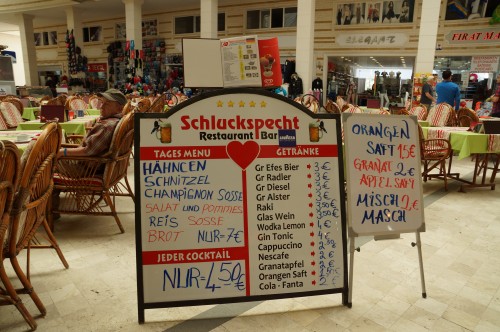 Schluckspecht
ELEGANCE
FIRAT MAR
Schluckspecht
Restaurant Bar
TAGES MENU
HÄHNCEN
SCHNITZEL
CHAMPIGNON SOSSE
SALAT UND POMMES
REIS SOSSE
BROT NUR=7€
JEDER COCKTAIL
NUR=4,50€
GETRÄNKE
Gr Efes Bier 3€
Gr Radler 3€
Gr Diesel 3€
Gr Alster 3€
Raki 3,50€
Glas Wein 3,50€
Wodka Lemon 4€
Gin Tonic 4€
Cappuccino 2€
Nescafe 2€
Granatapfel 2€
Orangen Saft
Cola - Fanta 2€
ORANGEN
SAFT 1,5€
GRANAT
APFELSAFT 2€
MISCH
MASCH 2€